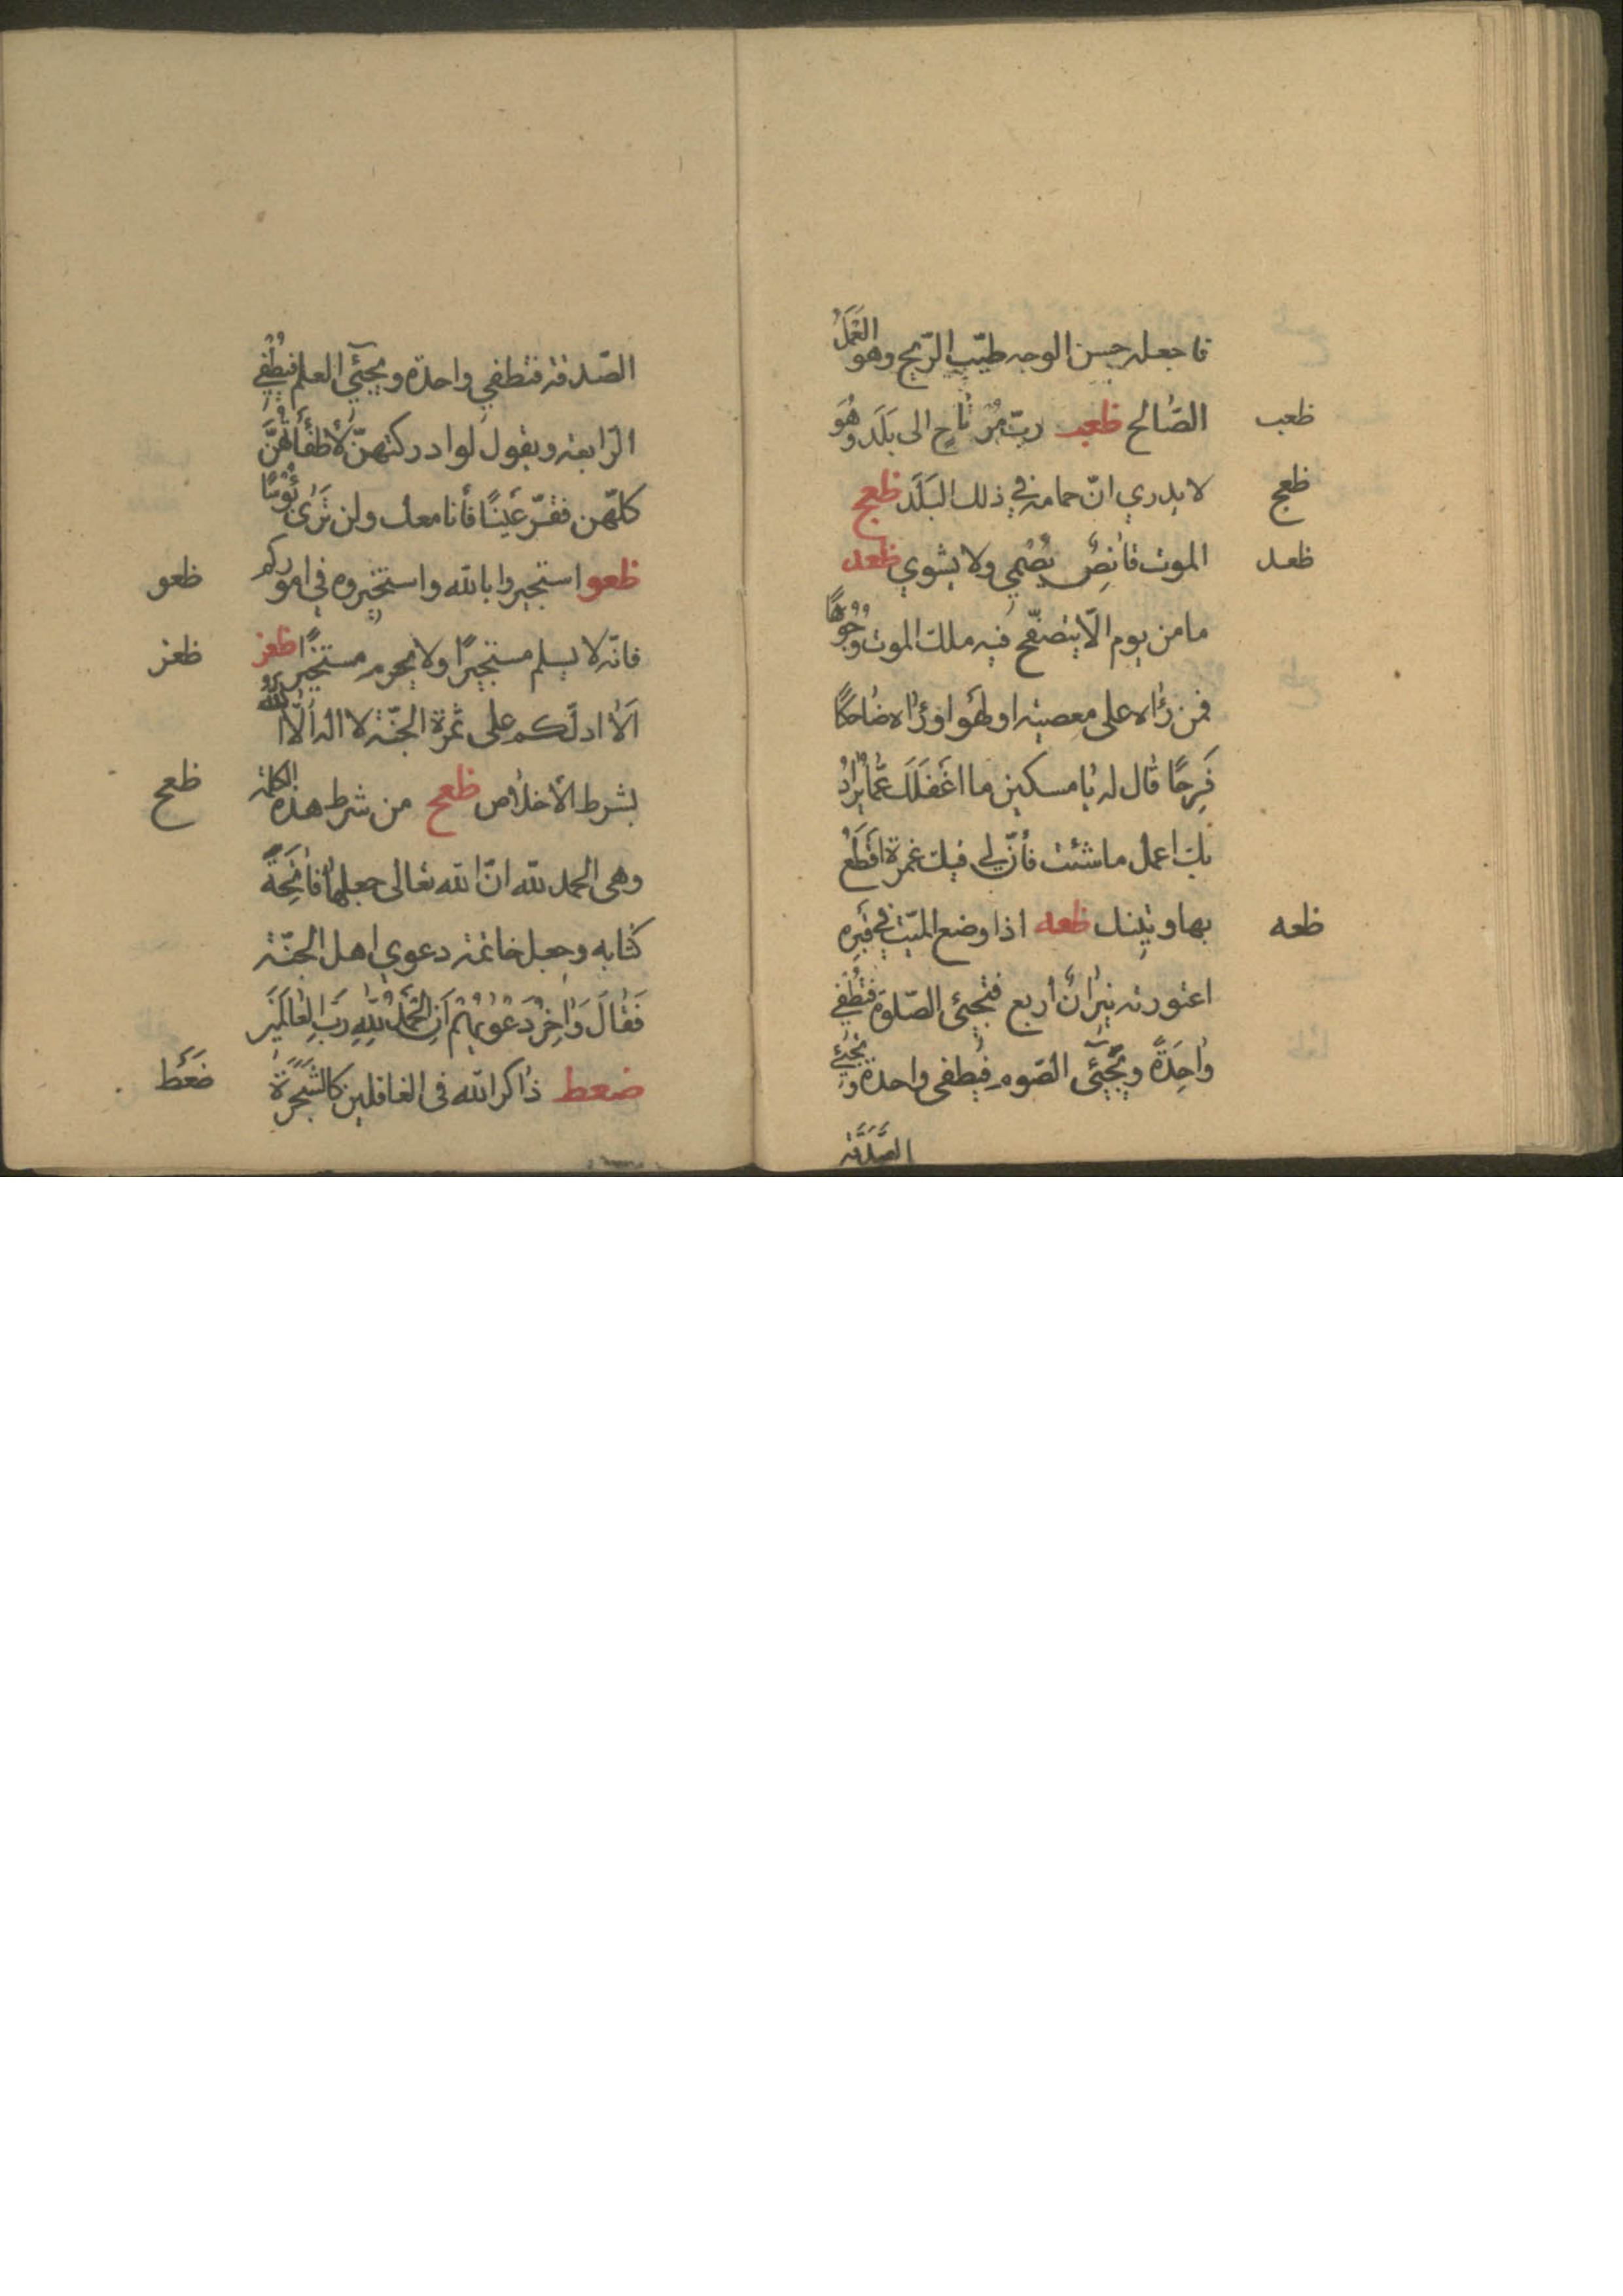 فاجعله حسن الوجه طيّب الرّيح وهو العَمَلُ
الصّالح ظعب ربّ مرتاح الى بَلَد وهُوَ
ظعب
لا يدري انّ حمامه في ذلك البَلَد ظعج
ظعج
الموت قانِصٌ يُصْمي ولا يشوي ظعد
ظعد
ما من يوم الّا يتصفّح فيه ملك الموت وُجُوهًا
فمن رٰاه على معصيته او لهو او رٰاه ضاحكًا
فَرِحًا قال له يا مسكين ما اغفَلَكَ عَمّا يُرادُ
بك اعمل ما شئت فأنّ لي فيك غمرة اقطَعُ
بها وتينك ظعه اذا وضع الميّت في قبرِه
ظعه
اعتورته نيرانٌ اربع فتجيئى الصّلوة فتُطفي
واحِدَةً ويَجيئى الصّوم فيُطفى واحدة وتجيئ
الصَّدَقَة
الصّدقة فتطفي واحدة ويجيئي العلم فيُطْفِي
الرّابعة ويقول لو ادركتهنّ لأطفأتُهُنَّ
كلّهن فقرّ عَينًا فأنا معك ولن تَرٰى بُؤسًا
ظعو استجيروا بالله واستخيروه في اموركم
ظعو
فانّه لا يسلم مستجيرًا ولا يحرم مستخيرًا ظعز
ظعز
اَلٰا ادلّكم على ثمرة الجنّة لا اله الّا اللهُ
بشرط الأخلاص ظعح من شرط هذه الكلمة
ظعح
وهى الحمد لله انّ الله تعالى جعلها فاتِحَةَ
كتابه وجعل خاتمة دعوي اهل الجنّة
فَقٰالَ وَاٰخِرُ دَعْوٰيهُمْ اَنِ الْحَمْدُ لِلّٰهِ رَبِّ الْعٰالَمٖينَ
ضعط ذاكر الله فى الغافلين كالشَّجَرَةِ
ضَعَط